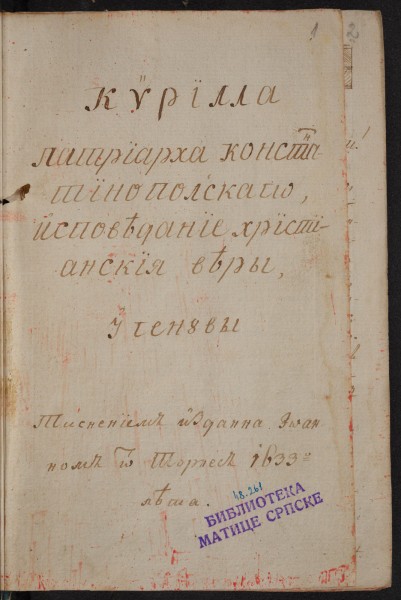 1
2
Кѷрїлла
патрїарха конста҃н-
тїнополскагѡ,
исповѣданїе хрїстї-
анскїя вѣры,
У Генꙋвы
Тисненїемъ изданна Іѡан-
номъ де Торнесъ 1633го
лѣта.
48.261
БИБЛИОТЕКА
МАТИЦЕ СРПСКЕ